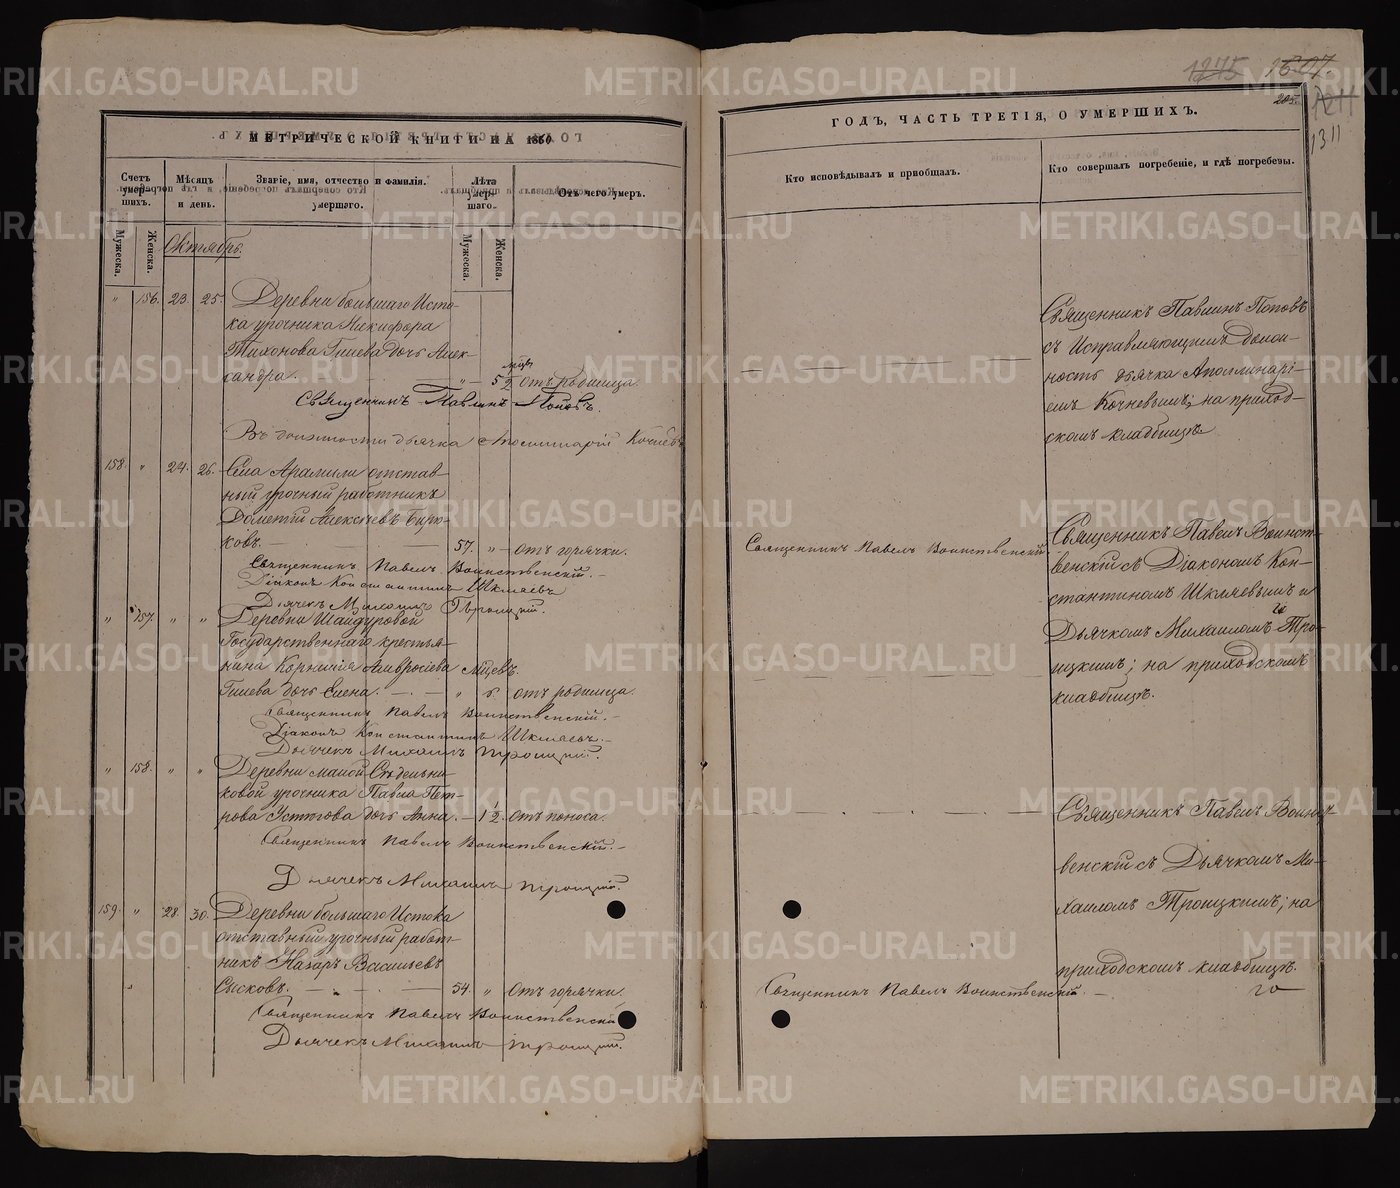 МЕТРИЧЕСКОЙ КНИГИ НА 1860
Счетъ умер-
шихъ.
Мѣсяцъ
и день.
Званіе, имя, отчество и фамилія
умершаго.
Лѣта
умер-
шаго.
Отъ чего умеръ.
Мужеска.
Женска.
Мужеска.
Женска.
Октябрь.
" 156. 23. 25. Деревни большаго Исто-
ка урочника Никифора
Тихонова Гилева дочь Алек-
сандра. " 5½ мцв отъ родимца.
Священникъ Павлинъ Поповъ.
Въ должности дьячка Аполлинарій Кочневъ
158. " 24. 26. Села Арамили отстав-
ный урочный работникъ
Дометій Алексѣевъ Бирю-
ковъ. 57. " отъ горячки.
Священникъ Павелъ Воинственскій.
Діаконъ Константинъ Шкляевъ
Дьячекъ Михаилъ Троицкій.
" 157. " " Деревни Шайдуровой
Государственнаго крестья-
нина Корнилія Амвросіева мцевъ.
Гилева дочь Елена. " 6. отъ родимца.
Священникъ Павелъ Воинственскій.
Діаконъ Константинъ Шкляевъ.
Дьячекъ Михаилъ Троицкій.
" 158. " " Деревни малой Сѣдельни-
ковой урочника Павла Пет-
рова Устюгова дочь Анна. 1½. отъ поноса.
Священникъ Павелъ Воинственскій.
Дьячекъ Михаилъ Троицкій.
159. " 28. 30. Деревни большаго Истока
отставный урочный работ-
никъ Назаръ Васильевъ
Сысковъ. 54. " отъ горячки.
Священникъ Павелъ Воинственскій
Дьячекъ Михаилъ Троицкій.
1245 1607.
205.
1211
1311
ГОДЪ, ЧАСТЬ ТРЕТІЯ, О УМЕРШИХЪ.
Кто исповѣдывалъ и пріобщалъ.
Кто совершалъ погребеніе, и гдѣ погребены.
Священникъ Павлинъ Поповъ
съ Исправляющимъ долж-
ность дьячка Аполлинарі-
емъ Кочневымъ; на приход-
скомъ кладбищѣ.
Священникъ Павелъ Воинственскій
Священникъ Павелъ Воинст-
венскій съ Діакономъ Кон-
стантиномъ Шкляевымъ и
Дьячкомъ Михаиломъ Тро-
ицкимъ; на приходскомъ
кладбищѣ.
Священникъ Павелъ Воинст-
венскій съ Дьячкомъ Ми-
хаиломъ Троицкимъ; на
приходскомъ кладбищѣ.
Священникъ Павелъ Воинственскій.
METRIKI.GASO-URAL.RU